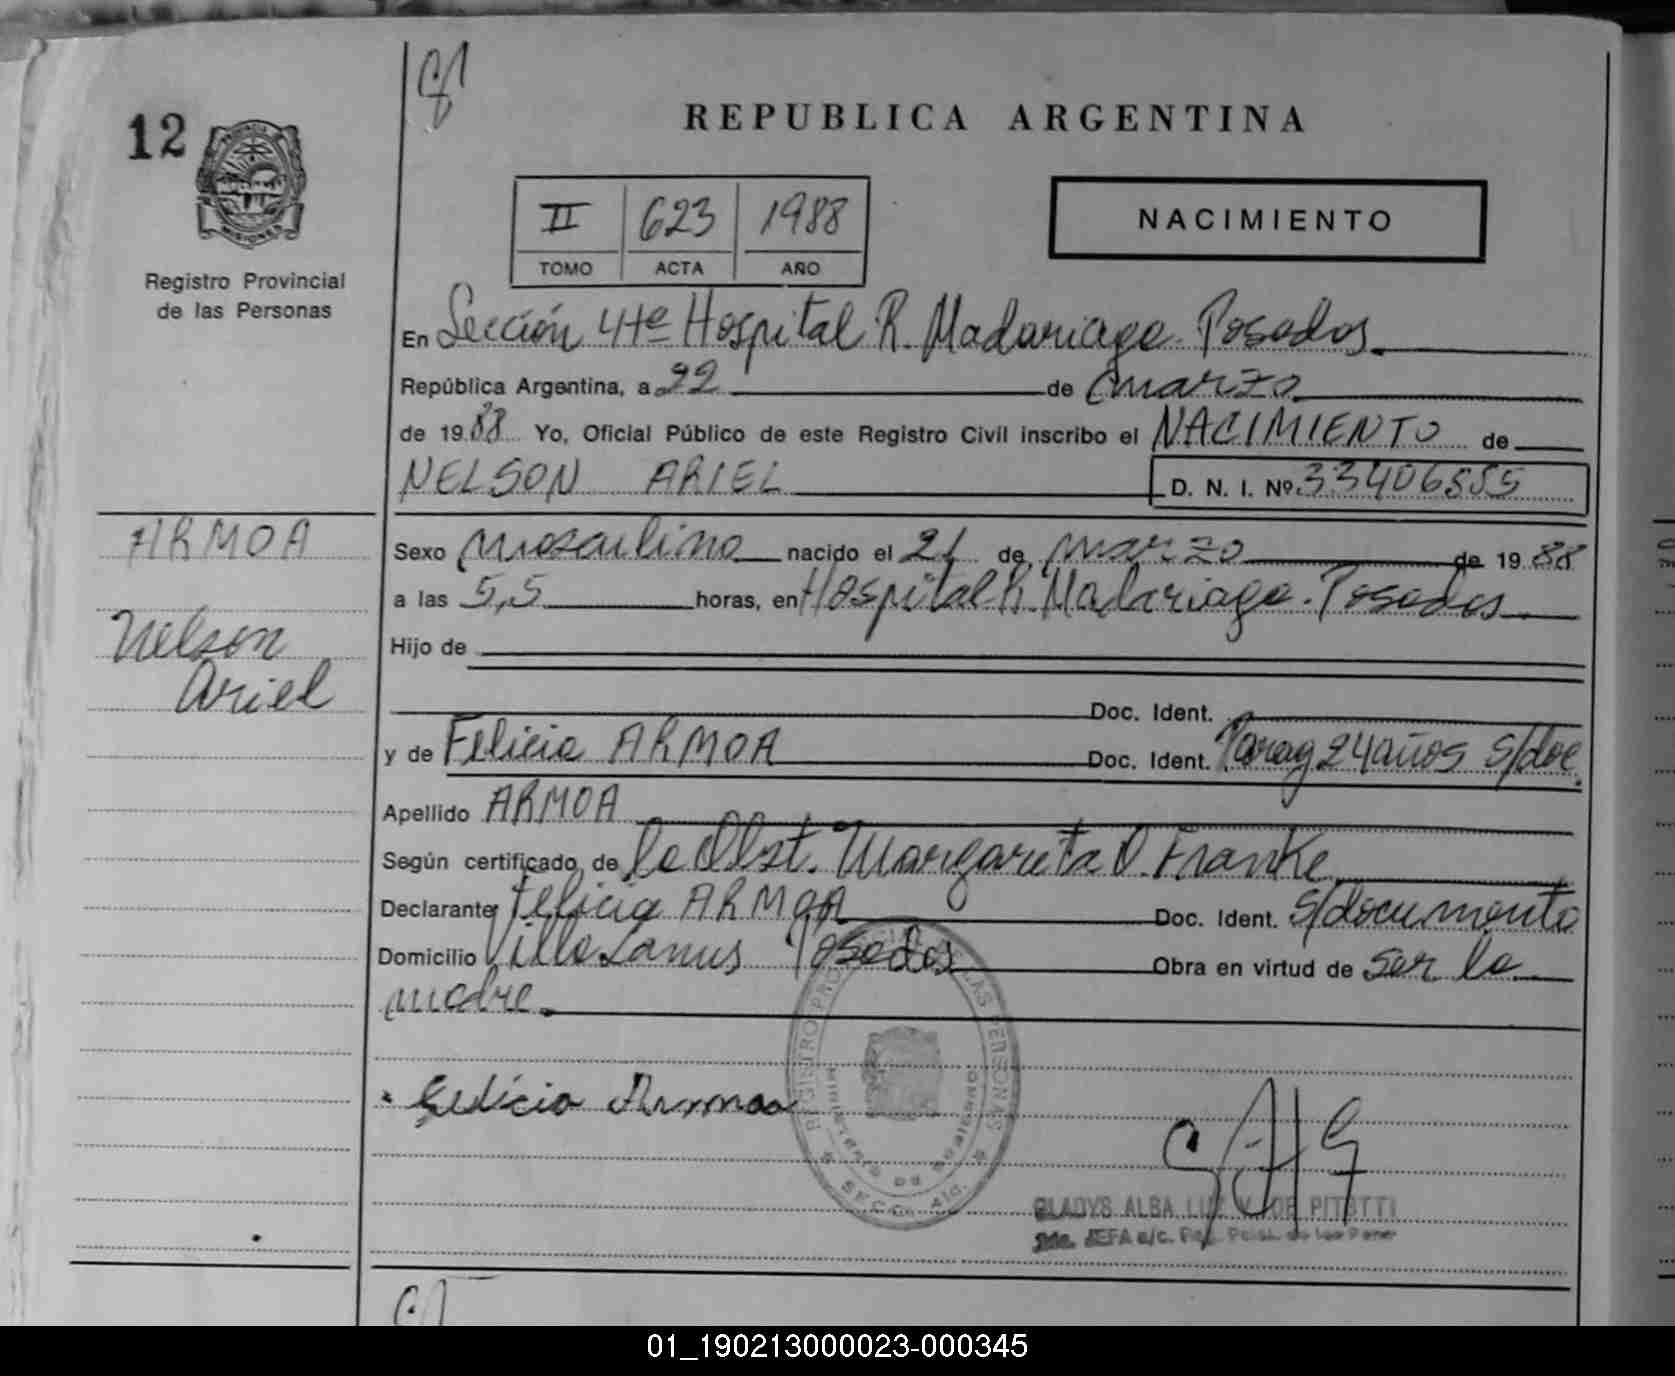 12
REPUBLICA ARGENTINA
II 623 1988
TOMO ACTA AÑO
NACIMIENTO
MISIONES
Registro Provincial
de las Personas
En Sección 4ta Hospital R. Madariaga. Posadas
República Argentina, a 22 de marzo
de 1988 Yo, Oficial Público de este Registro Civil inscribo el NACIMIENTO de
NELSON ARIEL D. N. I. Nº 33406555
ARMOA
Nelson
Ariel
Sexo masculino nacido el 21 de marzo de 1988
a las 5,5 horas, en Hospital R. Madariaga. Posadas
Hijo de
Doc. Ident.
y de Felicia ARMOA Doc. Ident. Parag 24 años s/doc.
Apellido ARMOA
Según certificado de la Obst. Margareta O. Franke
Declarante Felicia ARMOA Doc. Ident. s/documento
Domicilio Villa Lanus Posadas Obra en virtud de ser la
madre
Felicia Armoa
REGISTRO PROVINCIAL DE LAS PERSONAS
MINISTERIO DE GOBIERNO
GLADYS ALBA V. DE PITOTTI
JEFA a/c. de las Pers.
01_190213000023-000345